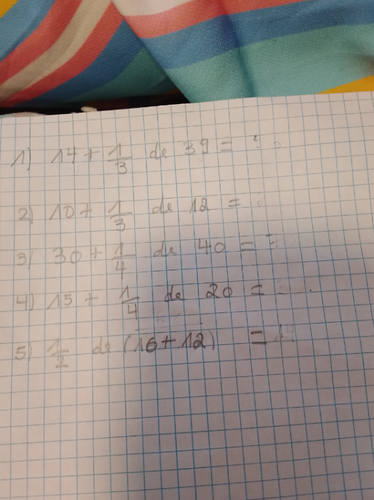 1) 14 + 1/3 de 39 = ?
2) 10 + 1/3 de 12 =
3) 30 + 1/4 de 40 = ?
4) 15 + 1/4 de 20 =
5) 1/2 de (16 + 12) =